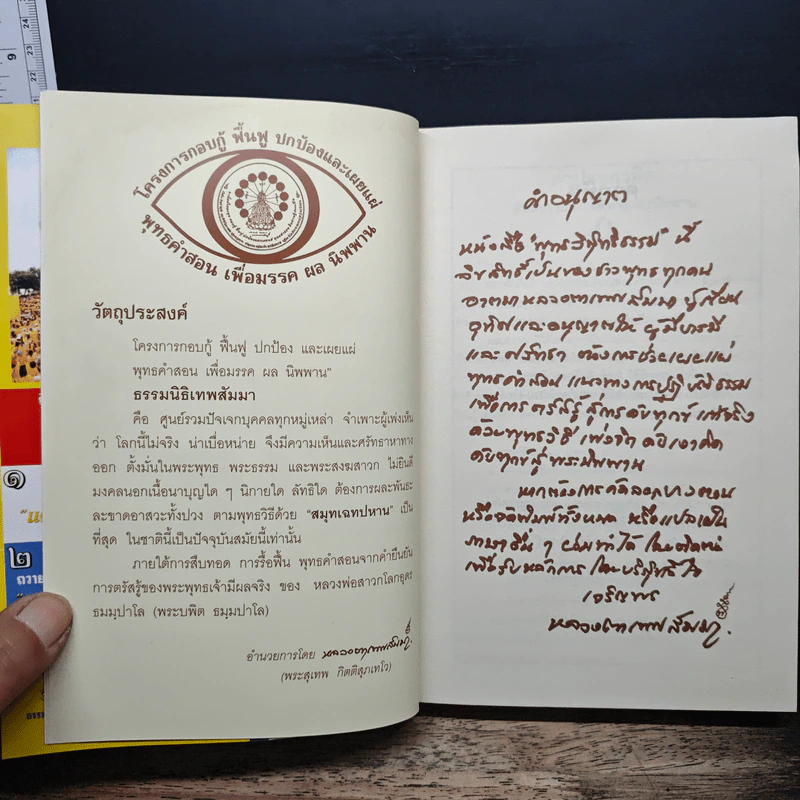 โครงการกอบกู้ ฟื้นฟู ปกป้องและเผยแผ่
พุทธคำสอน เพื่อมรรค ผล นิพพาน
วัตถุประสงค์
โครงการกอบกู้ ฟื้นฟู ปกป้อง และเผยแผ่
พุทธคำสอน เพื่อมรรค ผล นิพพาน"
ธรรมนิธิเทพสัมมา
คือ ศูนย์รวมปัจเจกบุคคลทุกหมู่เหล่า จำเพาะผู้เพ่งเห็น
ว่า โลกนี้ไม่จริง น่าเบื่อหน่าย จึงมีความเห็นและศรัทธาหาทาง
ออก ตั้งมั่นในพระพุทธ พระธรรม และพระสงฆสาวก ไม่ยินดี
มงคลนอกเนื้อนาบุญใด ๆ นิกายใด ลัทธิใด ต้องการผละพันธะ
ละขาดอาสวะทั้งปวง ตามพุทธวิธีด้วย "สมุทเฉทปหาน" เป็น
ที่สุด ในชาตินี้เป็นปัจจุบันสมัยนี้เท่านั้น
ภายใต้การสืบทอด การรื้อฟื้น พุทธคำสอนจากคำยืนยัน
การตรัสรู้ของพระพุทธเจ้ามีผลจริง ของ หลวงพ่อสาวกโลกอุดร
ธมมฺปาโล (พระบพิต ธมฺมปาโล)
อำนวยการโดย หลวงตาเทพสัมมา
(พระสุเทพ กิตติสุภเทโว)
คำอนุญาต
หนังสือ "พุทธวิสุทธิธรรม" นี้
ลิขสิทธิ์เป็นของชาวพุทธทุกคน
อาตมาหลวงตาเทพสัมมา ผู้เขียน
อุทิศและอนุญาตให้ ผู้มีบารมี
และศรัทธา ต้องการช่วยเผยแผ่
พุทธคำสอน แนวทางการปฏิบัติธรรม
เพื่อการตรัสรู้ สู่การดับทุกข์ แท้จริง
ด้วยพุทธวิธี เพ่งจิต
ดับทุกข์สู่พระนิพพาน
หากต้องการคัดลอกบางตอน
หรือจัดพิมพ์ทั้งหมด หรือแปลเป็น
ภาษาอื่น ๆ ย่อมทำได้
เจริญพร
หลวงตาเทพสัมมา.
๑
๒
ถวาย